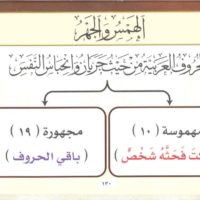 الهمس والجهر
الحروف العربية من حيث جريان وانحباس النفس
مهموسة (١٠)
مجهورة (١٩)
فحثه شخص
( باقي الحروف )
١٣٠